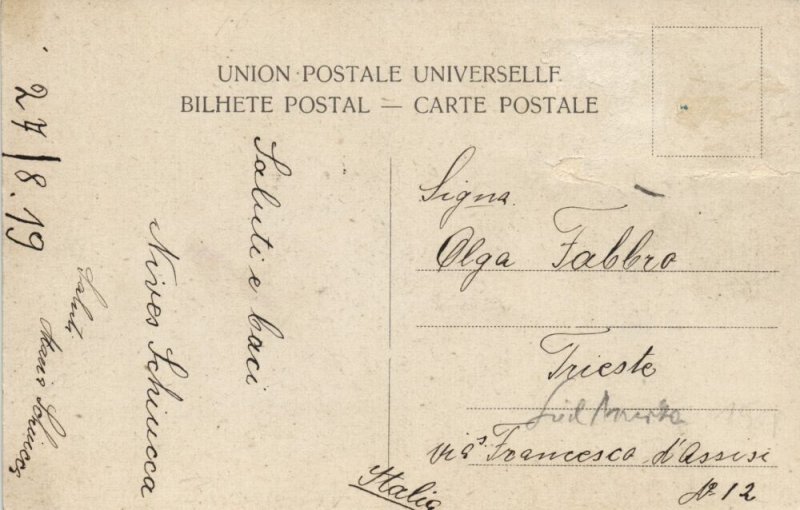 UNION POSTALE UNIVERSELLE
BILHETE POSTAL — CARTE POSTALE
24/8.19
Saluti e baci
Nives Schiucca
Saluti
Signa.
Olga Fabbro
Trieste
Süd
via S. Francesco d'Assisi
No 12
Italia